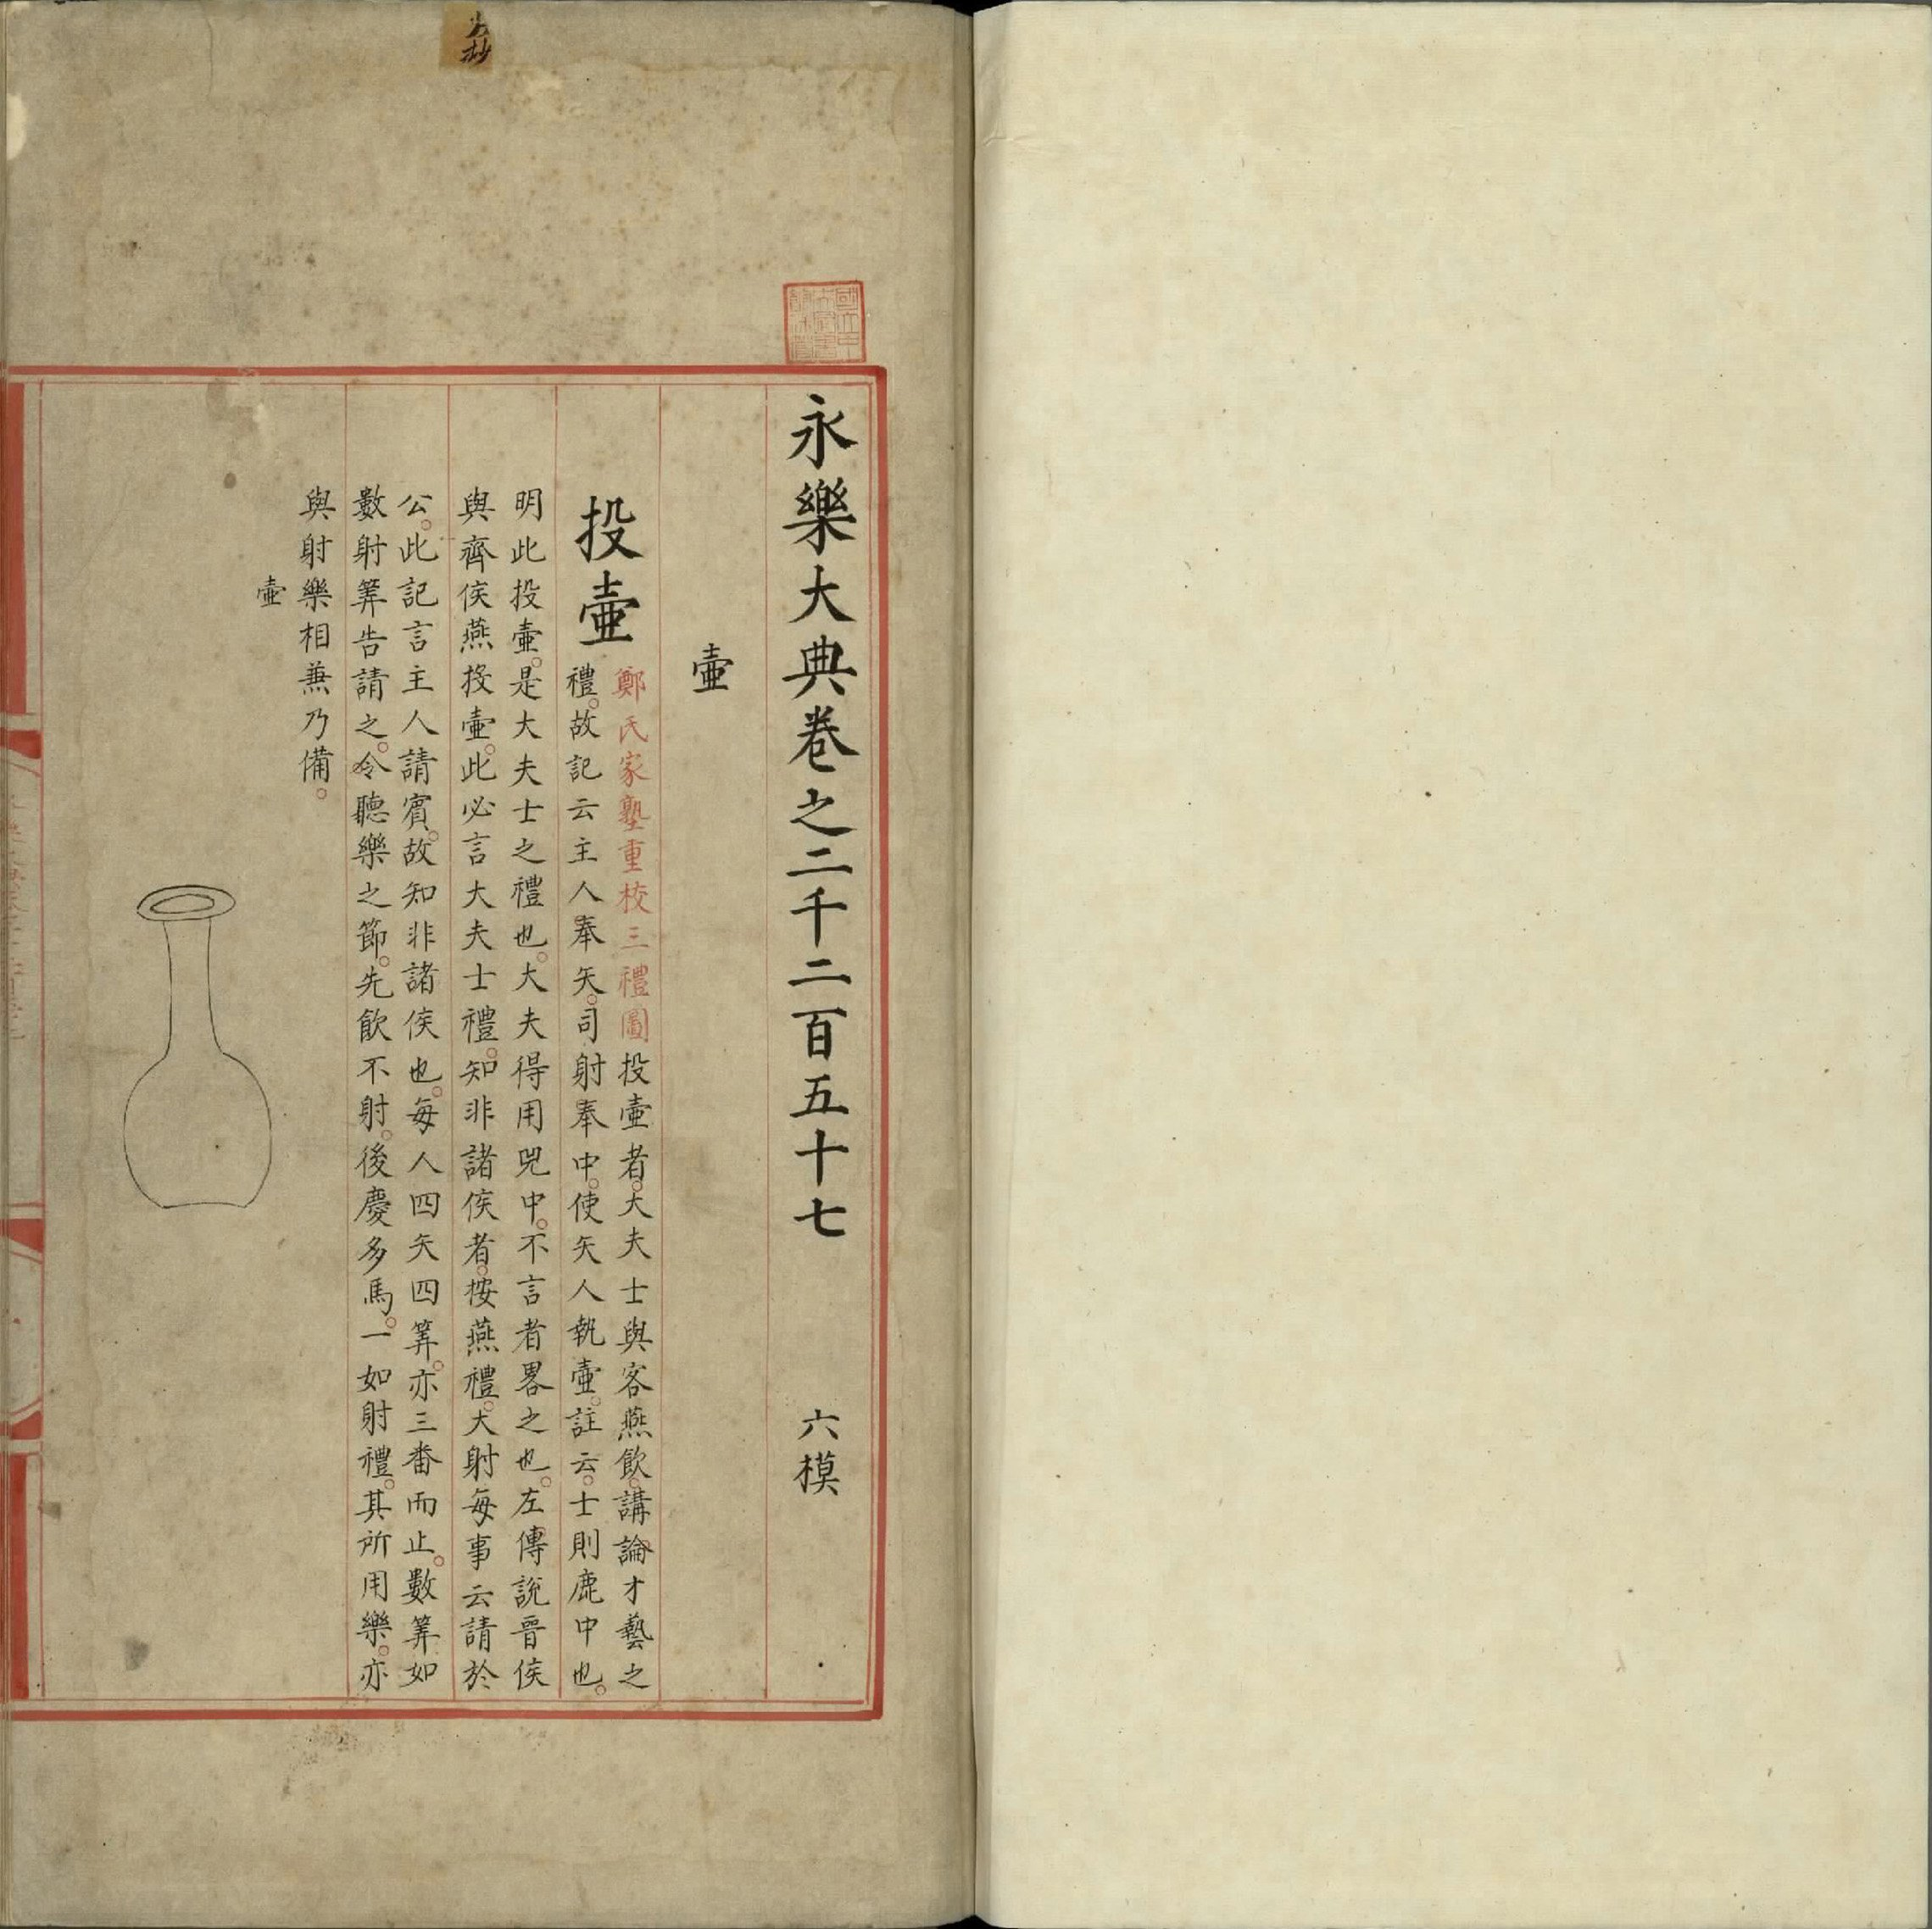 永樂大典卷之二千二百五十七　六模
壺
投壺
鄭氏家塾重校三禮圖投壺者。大夫士與客燕飲。講論才藝之
禮。故記云主人奉矢。司射奉中。使矢人執壺。註云。士則鹿中也。
明此投壺。是大夫士之禮也。大夫得用兕中。不言者畧之也。左傳說晉侯
與齊侯燕投壺。此必言大夫士禮。知非諸侯者。按燕禮。大射每事云請於
公。此記言主人請賓。故知非諸侯也。每人四矢四筭。亦三番而止。數筭如
數射筭告請之。令聽樂之節。先飲不射。後慶多馬。一如射禮。其所用樂。亦
與射樂相兼乃備。
壺